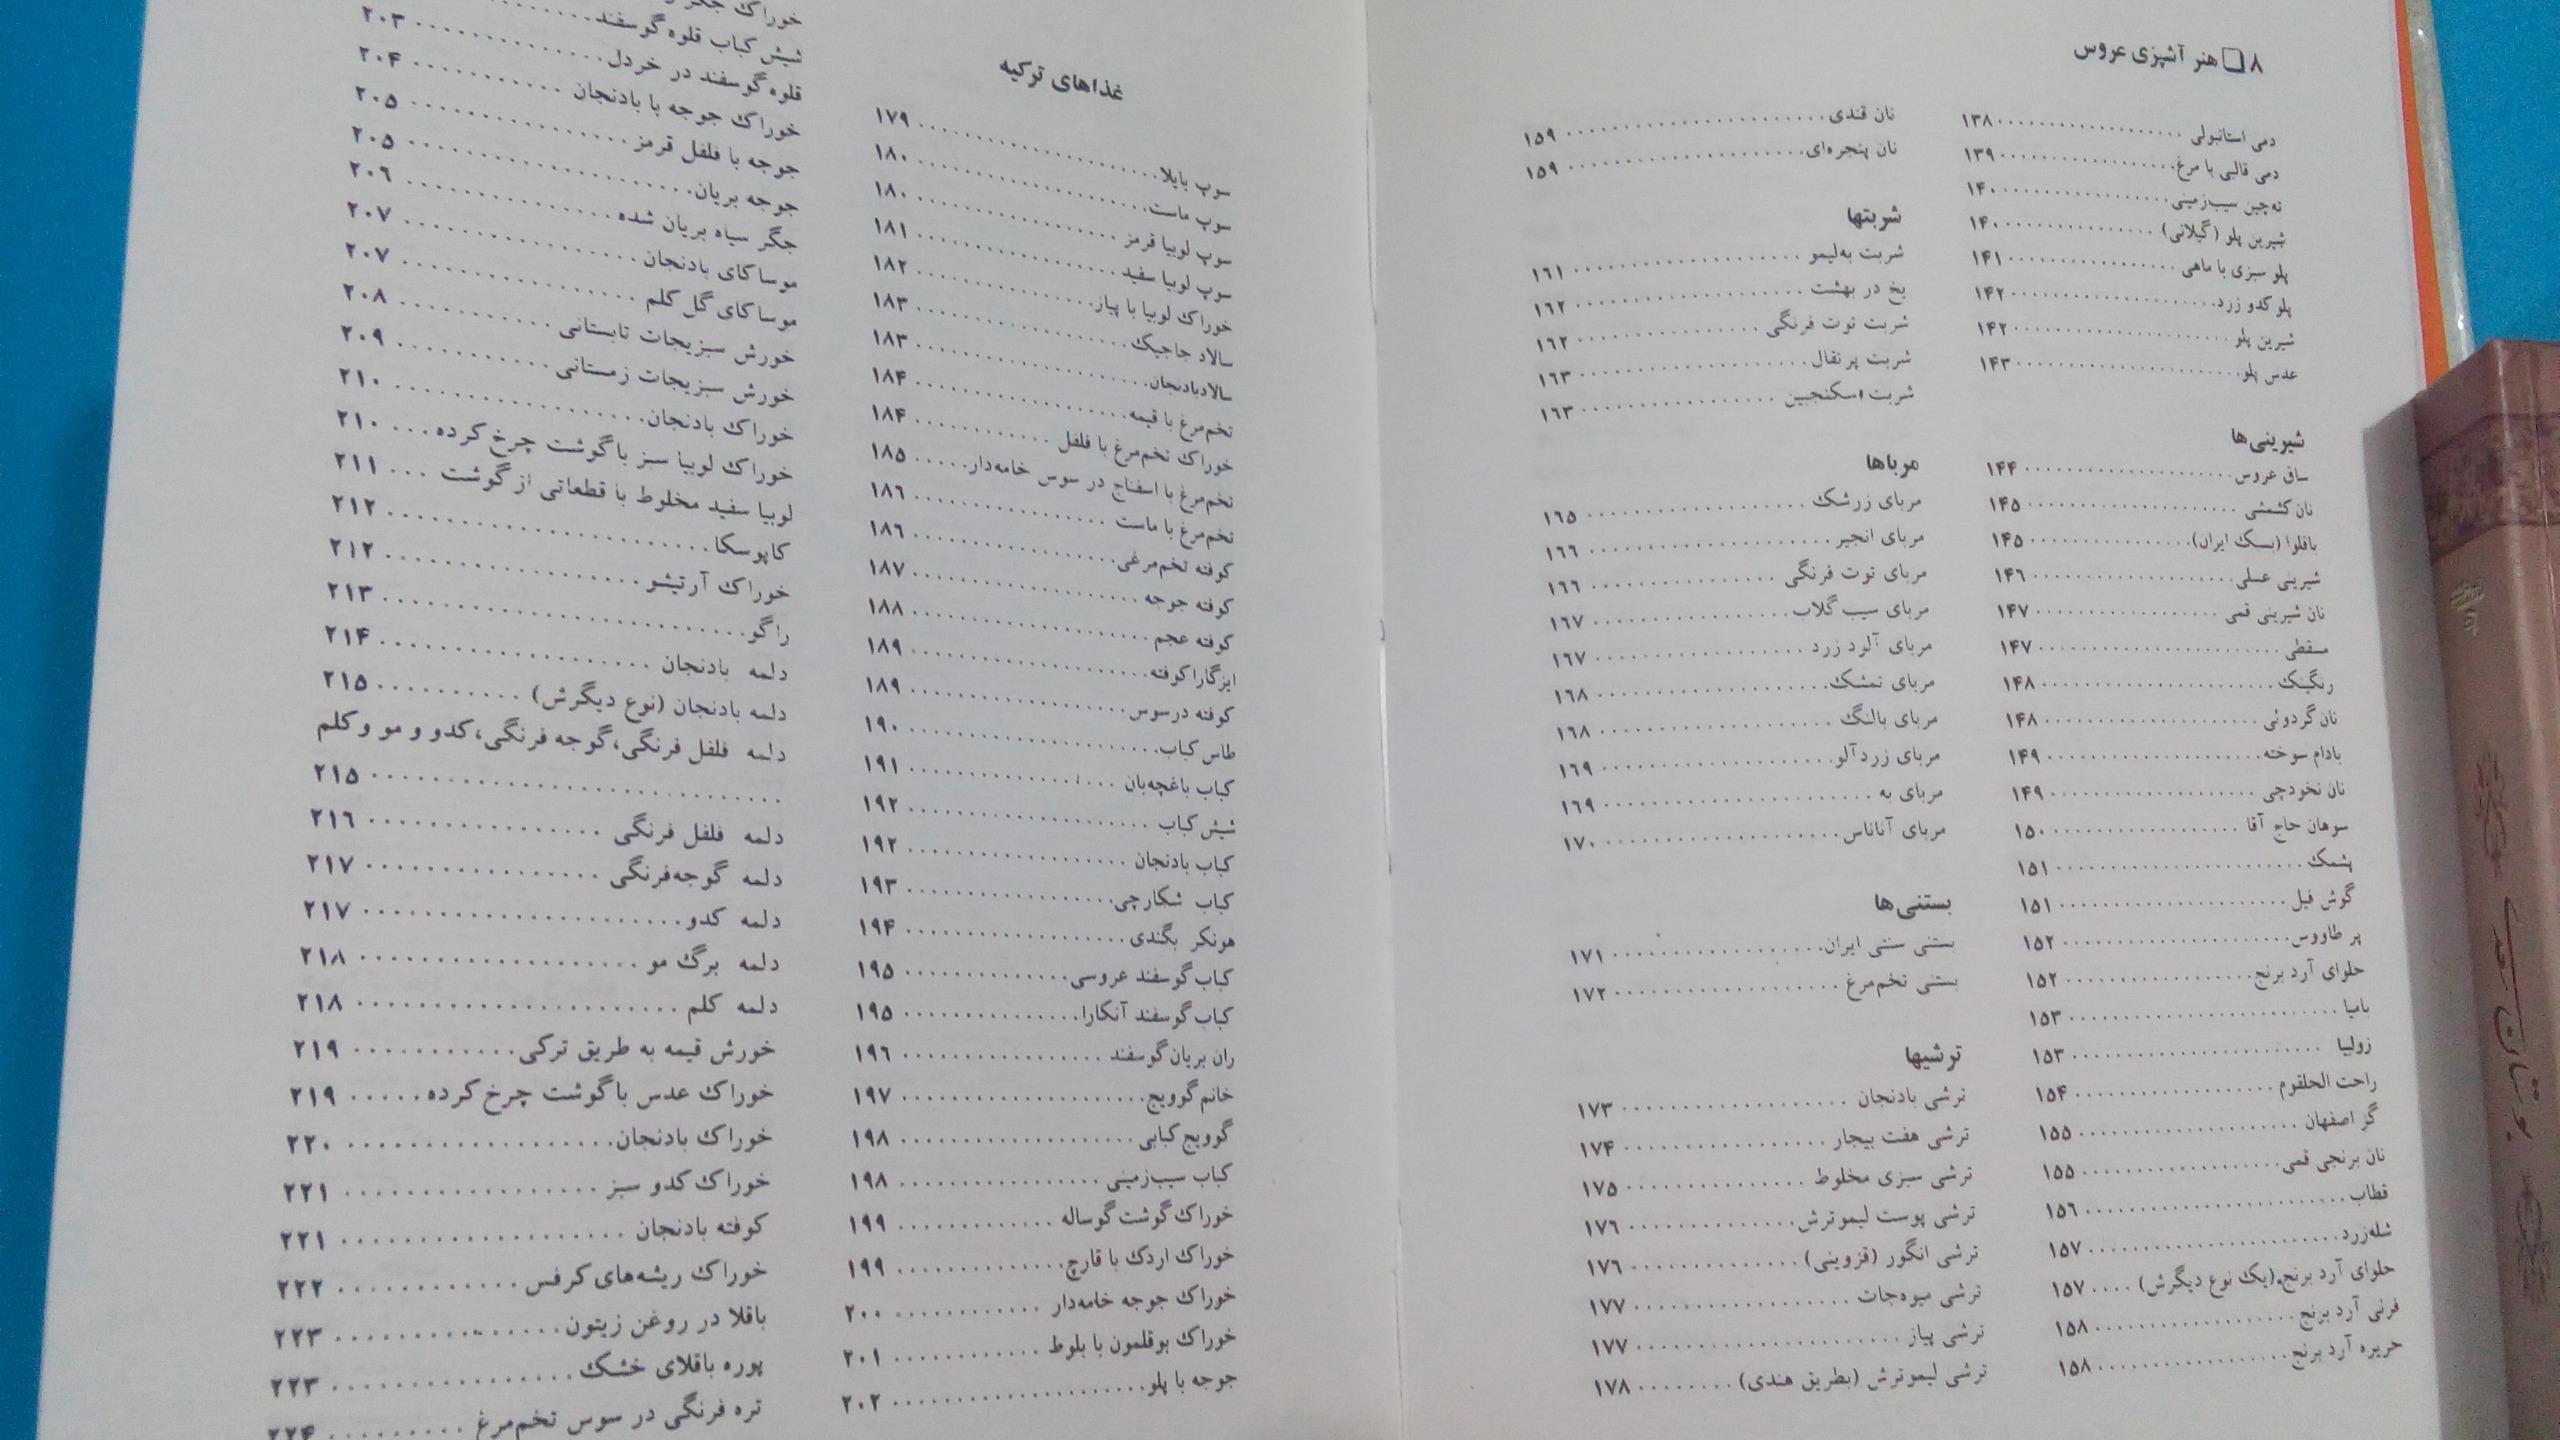 ۸ ❏ هنر آشپزی عروس
دمی استانبولی ۱۳۸
دمی قالبی با مرغ ۱۳۹
ته‌چین سیب‌زمینی ۱۴۰
شیرین پلو (گیلانی) ۱۴۰
پلو سبزی با ماهی ۱۴۱
پلو کدو زرد ۱۴۲
شیرین پلو ۱۴۲
عدس پلو ۱۴۳
شیرینی‌ها
ساق عروس ۱۴۴
نان کشمشی ۱۴۵
باقلوا (بسک ایران) ۱۴۵
شیرینی عسلی ۱۴۶
نان شیرینی قمی ۱۴۷
مسقطی ۱۴۷
رنگینک ۱۴۸
نان گردوئی ۱۴۸
بادام سوخته ۱۴۹
نان نخودچی ۱۴۹
سوهان حاج آقا ۱۵۰
پشمک ۱۵۱
گوش فیل ۱۵۱
پر طاووس ۱۵۲
حلوای آرد برنج ۱۵۲
بامیا ۱۵۳
زولبیا ۱۵۳
راحت الحلقوم ۱۵۴
گز اصفهان ۱۵۵
نان برنجی قمی ۱۵۵
قطاب ۱۵۶
شله‌زرد ۱۵۷
حلوای آرد برنج (یک نوع دیگرش) ۱۵۷
فرنی آرد برنج ۱۵۸
حریره آرد برنج ۱۵۸
نان قندی ۱۵۹
نان پنجره‌ای ۱۵۹
شربتها
شربت به‌لیمو ۱۶۱
یخ در بهشت ۱۶۲
شربت توت فرنگی ۱۶۲
شربت پرتقال ۱۶۳
شربت اسکنجبین ۱۶۳
مرباها
مربای زرشک ۱۶۵
مربای انجیر ۱۶۶
مربای توت فرنگی ۱۶۶
مربای سیب گلاب ۱۶۷
مربای آلود زرد ۱۶۷
مربای تمشک ۱۶۸
مربای بالنگ ۱۶۸
مربای زردآلو ۱۶۹
مربای به ۱۶۹
مربای آناناس ۱۷۰
بستنی‌ها
بستنی سنتی ایران ۱۷۱
بستنی تخم‌مرغ ۱۷۲
ترشیها
ترشی بادنجان ۱۷۳
ترشی هفت بیجار ۱۷۴
ترشی سبزی مخلوط ۱۷۵
ترشی پوست لیموترش ۱۷۶
ترشی انگور (قزوینی) ۱۷۶
ترشی میوه‌جات ۱۷۷
ترشی پیاز ۱۷۷
ترشی لیموترش (بطریق هندی) ۱۷۸
غذاهای ترکیه
سوپ یایلا ۱۷۹
سوپ ماست ۱۸۰
سوپ لوبیا قرمز ۱۸۰
سوپ لوبیا سفید ۱۸۱
خوراک لوبیا با پیاز ۱۸۲
سالاد جاجیک ۱۸۳
سالادبادنجان ۱۸۳
تخم‌مرغ با قیمه ۱۸۴
خوراک تخم‌مرغ با فلفل ۱۸۴
تخم‌مرغ با اسفناج در سوس خامه‌دار ۱۸۵
تخم‌مرغ با ماست ۱۸۶
کوفته تخم‌مرغی ۱۸۶
کوفته جوجه ۱۸۷
کوفته عجم ۱۸۸
ایزگاراکوفته ۱۸۹
کوفته درسوس ۱۸۹
طاس کباب ۱۹۰
کباب باغچه‌بان ۱۹۱
شیش کباب ۱۹۲
کباب بادنجان ۱۹۲
کباب شکارچی ۱۹۳
هونکر بگندی ۱۹۴
کباب گوسفند عروسی ۱۹۵
کباب گوسفند آنکارا ۱۹۵
ران بریان گوسفند ۱۹۶
خانم گوویج ۱۹۷
گوویج کبابی ۱۹۸
کباب سیب‌زمینی ۱۹۸
خوراک گوشت گوساله ۱۹۹
خوراک اردک با قارچ ۱۹۹
خوراک جوجه خامه‌دار ۲۰۰
خوراک بوقلمون با بلوط ۲۰۱
جوجه با پلو ۲۰۲
خوراک جگر
شیش کباب قلوه گوسفند ۲۰۳
قلوه گوسفند در خردل ۲۰۴
خوراک جوجه با بادنجان ۲۰۵
جوجه با فلفل قرمز ۲۰۵
جوجه بریان ۲۰۶
جگر سیاه بریان شده ۲۰۷
موساکای بادنجان ۲۰۷
موساکای گل کلم ۲۰۸
خورش سبزیجات تابستانی ۲۰۹
خورش سبزیجات زمستانی ۲۱۰
خوراک بادنجان ۲۱۰
خوراک لوبیا سبز با گوشت چرخ کرده ۲۱۱
لوبیا سفید مخلوط با قطعاتی از گوشت ۲۱۲
کاپوسکا ۲۱۲
خوراک آرتیشو ۲۱۳
راگو ۲۱۴
دلمه بادنجان
دلمه بادنجان (نوع دیگرش) ۲۱۵
دلمه فلفل فرنگی، گوجه فرنگی، کدو و مو و کلم
۲۱۵
دلمه فلفل فرنگی ۲۱۶
دلمه گوجه‌فرنگی ۲۱۷
دلمه کدو ۲۱۷
دلمه برگ مو ۲۱۸
دلمه کلم ۲۱۸
خورش قیمه به طریق ترکی ۲۱۹
خوراک عدس با گوشت چرخ کرده ۲۱۹
خوراک بادنجان ۲۲۰
خوراک کدو سبز ۲۲۱
کوفته بادنجان ۲۲۱
خوراک ریشه‌های کرفس ۲۲۲
باقلا در روغن زیتون ۲۲۳
پوره باقلای خشک ۲۲۳
تره فرنگی در سوس تخم‌مرغ ۲۲۴
بوستان سعدی